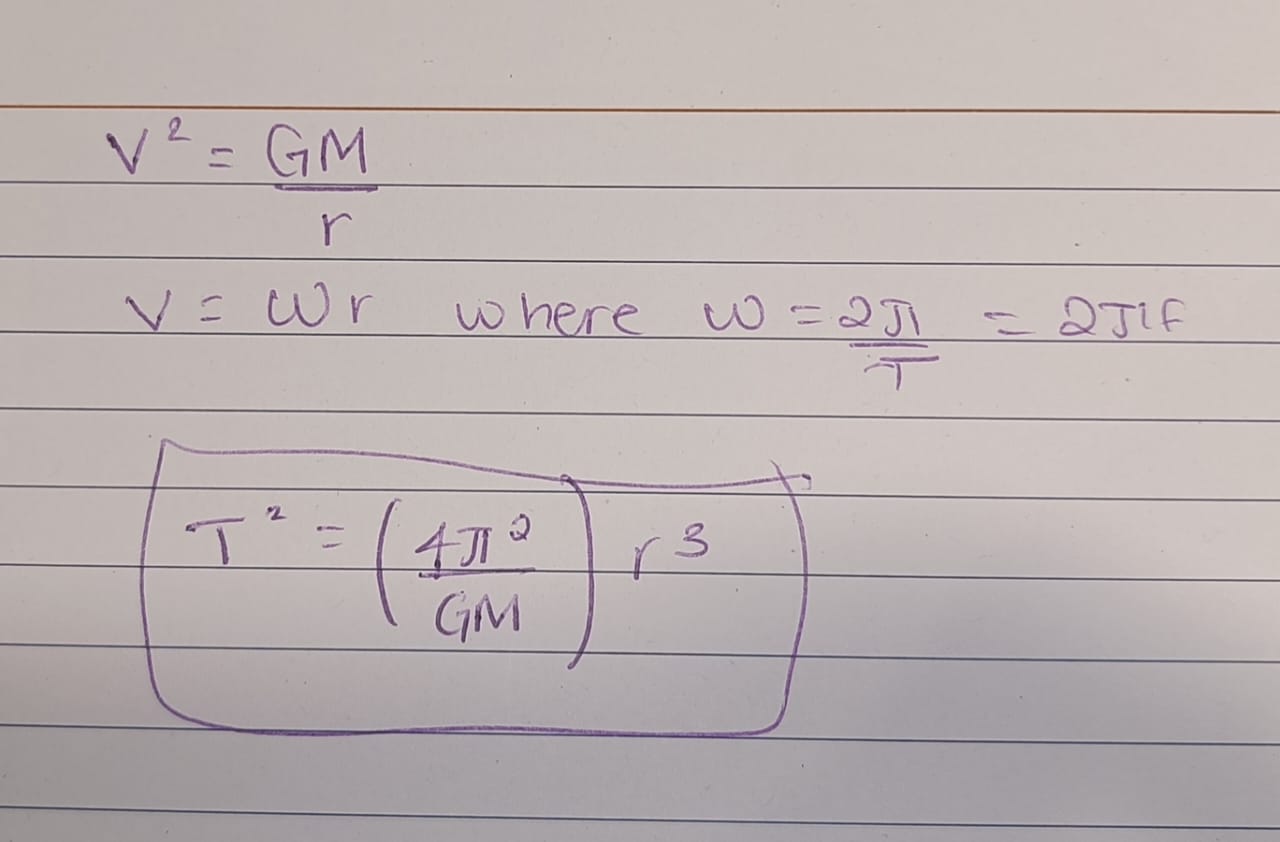 V² = GM/r
V = ωr where ω = 2π/T = 2πf
T² = (4π²/GM) r³